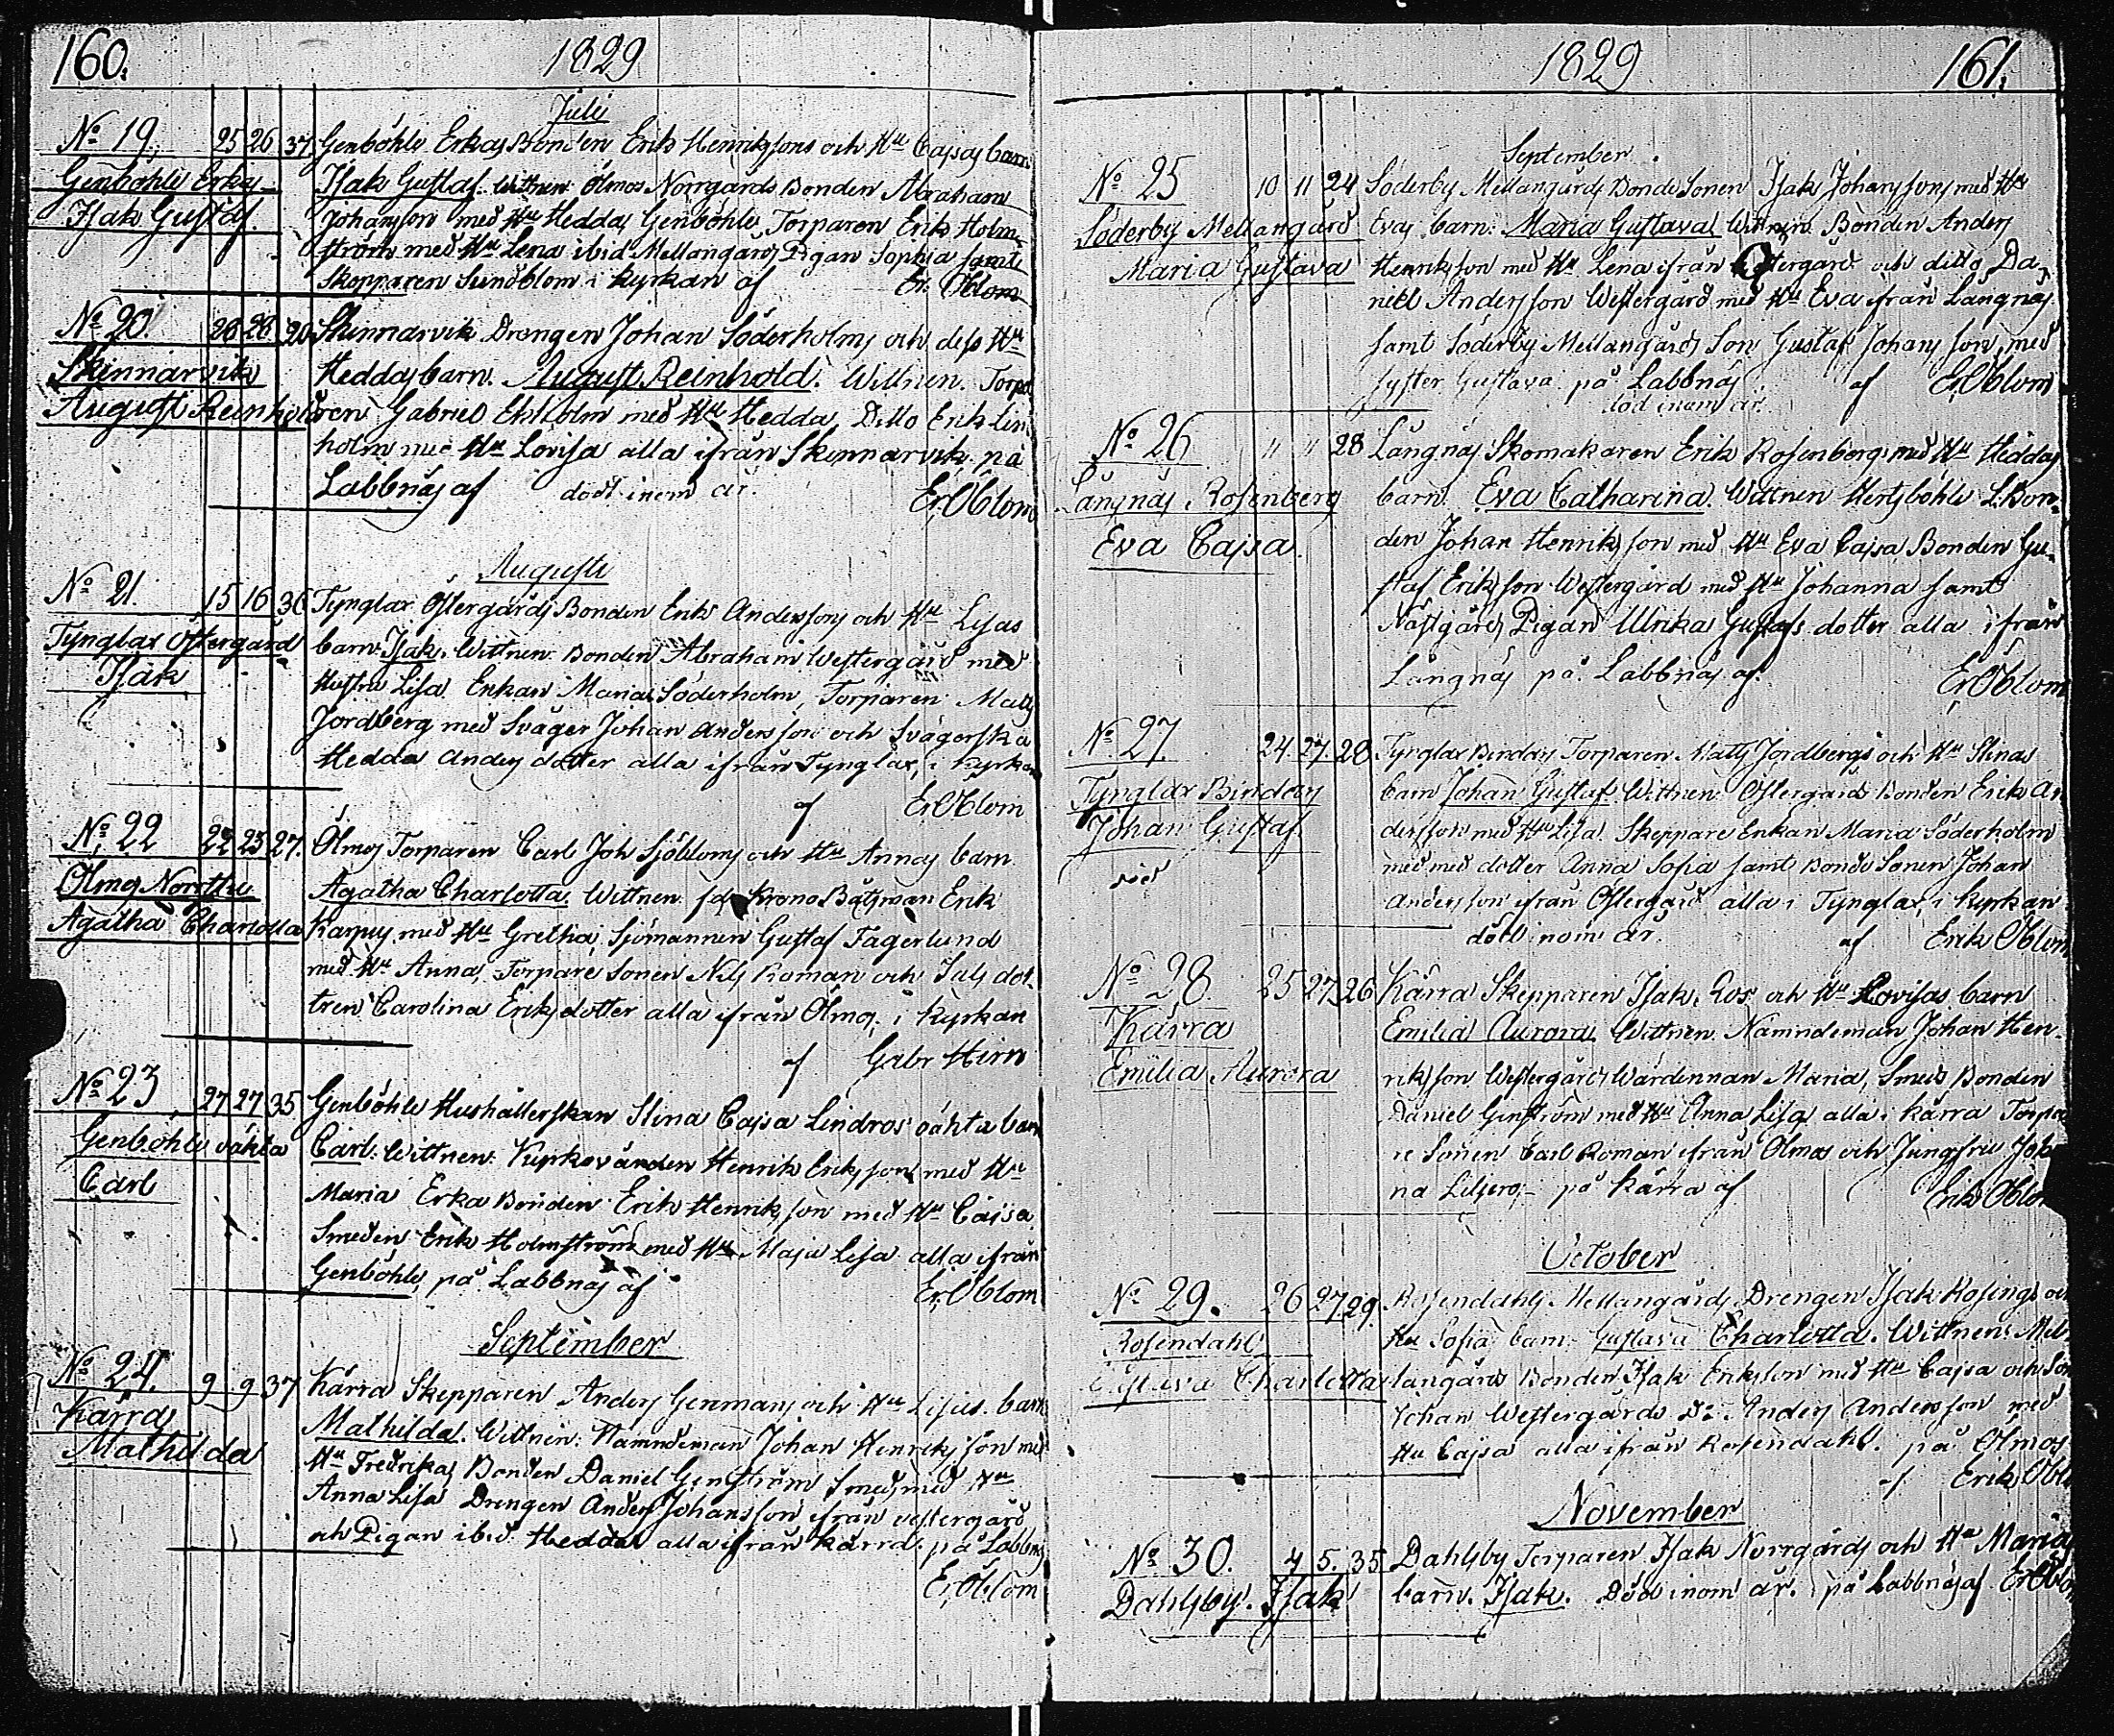 160.
1829
Julii
No 19, 25 26 37 Genböhle Erkas Bonden Erik Henrikssons och Hu Cajsas barn
Genböhle Erkas Isak Gustaf. Wittnen: Ölmos Norrgårds Bonden Abraham
Isak Gustaf. Johansson med Hu Hedda, Genböhle Torparen Erik Holm-
ström med Hu Lena ibid Mellangårds Pigan Sophia samt
Skepparen Sundblom i kyrkan af Er. Öblom
No 20. 26 28 20 Skinnarvik Drengen Johan Söderholms och dess Hu
Skinnarvik Heddas barn. August Reinhold. Wittnen. Torpa-
August Reinhold ren Gabriel Ekholm med Hu Hedda, Ditto Erik Lin
holm med Hu Lovisa alla ifrån Skinnarvik, på
Labbnäs af död inom år. Er. Öblom
Augusti
No 21. 15 16 36 Tynglax Östergårds Bonden Erik Anderssons och Hu Lisas
Tynglax Östergård barn Isak. Wittnen: Bonden Abraham Westergård med
Isak Hustru Lisa. Enkan Maria Söderholm, Torparen Matts
Jordberg med Svåger Johan Andersson och Svägerska
Hedda Anders dotter alla ifrån Tynglax, i kyrkan
af Er Öblom
No 22 22 23 27. Ölmos Torparen Carl Joh Sjöbloms och Hu Annas barn
Ölmos Agatha Charlotta. Wittnen Krono Båtsman Erik
Agatha Charlotta med Hu Gretha, Sjömannen Gustaf Fagerlund
med Hu Anna, Torpare Sonen Nils Roman och dot-
tren Carolina Eriksdotter alla ifrån Ölmos, i kyrkan
af Gabr Hirn
No 23 27 27 35 Genböhle Hushållerskan Stina Cajsa Lindros oächta barn
Genböhle oächta Carl. Wittnen: Kyrkovärden Henrik Eriksson med Hu
Carl Maria Erka Bonden Erik Henriksson med Hu Cajsa
Smeden Erik Holmström med Hu Maja Lisa alla ifrån
Genböhle, på Labbnäs af Er. Öblom
September
No 24. 9 9 37 Kärra Skepparen Anders Genmans och Hu Lisas barn
Kärra Mathilda. Wittnen: Nämndeman Johan Henriksson med
Mathilda Hu Fredrika, Bonden Daniel Genström Smeds med Hu
Anna Lisa Drengen Anders Johansson ifrån Westergård
och Pigan ibid. Hedda alla ifrån Kärra. på Labbnäs
Er. Öblom
1829 161.
September
No 25 10 11 24 Söderby Mellangårds Bonde Sonen Isak Johanssons med Hu
Söderby Mellangård Evas barn. Maria Gustava. Wittnen Bonden Anders
Maria Gustava Henriksson med Hu Lena ifrån Östergård och ditto Da-
niel Andersson Westergård med Hu Eva ifrån Långnäs
samt Söderby Mellangårds Son Gustaf Johansson med
syster Gustava. på Labbnäs af Er Öblom
död inom år.
No 26 " " 28 Långnäs Skomakaren Erik Rosenbergs med Hu Heddas
Långnäs, Rosenberg barn. Eva Catharina. Wittnen Hertsböhle L. Bon-
Eva Cajsa. den Johan Henriksson med Hu Eva Cajsa, Bonden Gu-
staf Eriksson Westergård med Hu Johanna samt
Näst gårds Pigan Ulrika Gustafs dotter alla ifrån
Långnäs på Labbnäs af. Er Öblom
No 27. 24. 27. 28 Tynglax Bindars Torparen Matts Jordbergs och Hu Stinas
Tynglax Bindars barn Johan Gustaf. Wittnen: Östergårds Bonden Erik An
Johan Gustaf. dersson med Hu Lisa. Skeppare Enkan Maria Söderholm
död med dotter Anna Sofia samt Bonde Sonen Johan
Andersson ifrån Östergård alla i Tynglax, i kyrkan
död inom år. af Erik Öblom
No 28. 25 27 26 Kärra Skepparen Isak Ros och Hu Lovisas barn
Kärra Emilia Aurora. Wittnen. Nämndeman Johan Hen-
Emilia Aurora riksson Westergård, Wärdinnan Maria, Smeds Bonden
Daniel Genström med Hu Anna Lisa alla i Kärra Torpa
re Sonen Carl Roman ifrån Ölmos och Jungfru Joh
na Liljeros på Kärra af Erik Öblom
October
No 29. 26 27 29. Rosendahls Mellangårds Drengen Isak Rosings och
Rosendahl Hu Sofia barn Gustava Charlotta. Wittnen: Mel
Gustava Charlotta langårds Bonden Isak Eriksson med Hu Cajsa och Son
Johan Westergårds Do Anders Andersson med
Hu Cajsa alla ifrån Rosendahl. på Ölmos
af Erik Öbl
November
No 30. 4 5. 35 Dahlsby Torparen Isak Norrgårds och Hu Marias
Dahlsby. Isak barn. Isak. Död inom år. på Labbnäs af Er Öblom